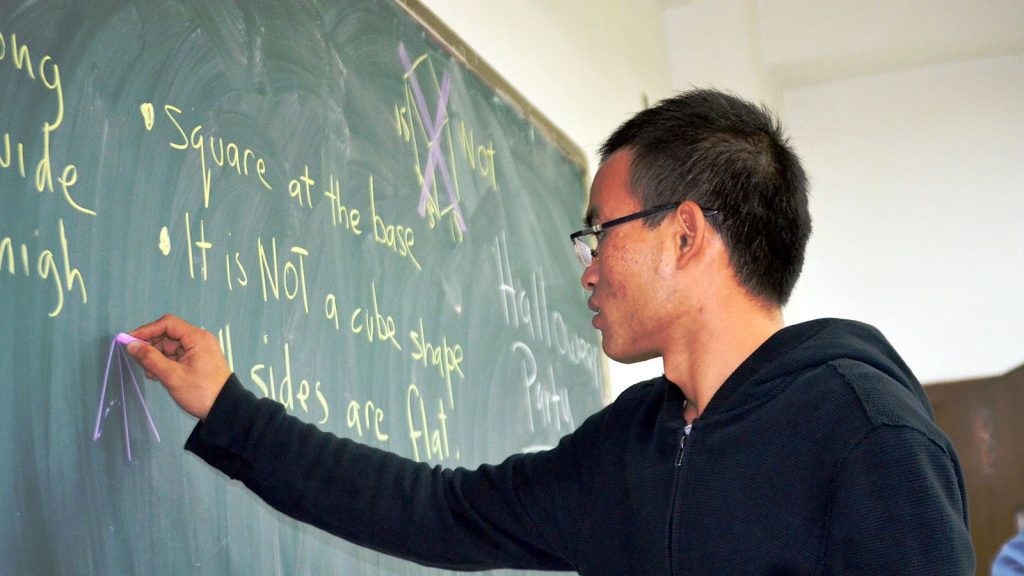 ong
wide
high
• Square at the base
• It is NOT a cube shape
sides are flat.
is Not
Halloween
Party